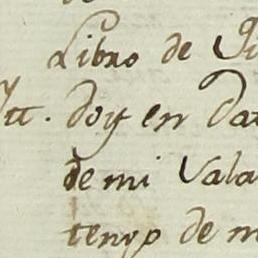 Libro de
Ytt. doy en Dat
de mi Vala
tengo de m